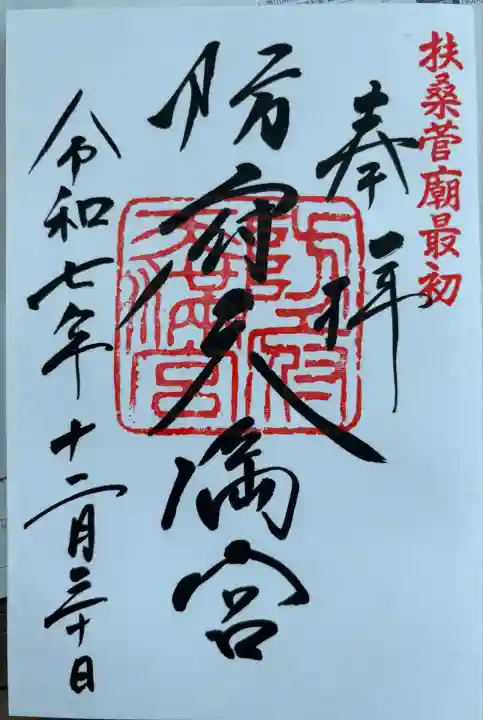 扶桑菅廟最初
奉拝
防府天満宮
防府天満宮
令和七年十二月三十日